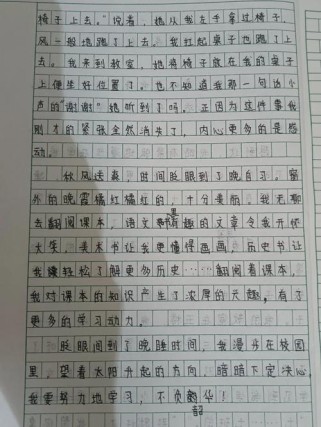 椅子上去。”说着，她从我左手拿过椅子，
风一般地跑了上去。我扛起桌子也跑了上
去。我来到教室，她将椅子放在我的桌子
上便坐好位置了，也不知道我那一句边小
声的“谢谢”她听到了吗。正因为这件事我
刚才的紧张全然消失了，内心更多的是感
动。
秋风送爽，时间眨眼到了晚自习。窗
外的晚霞橘红橘红的，十分美丽。我无聊
去翻阅课本，语文书里有趣的文章令我开怀
大笑，美术书让我更懂得画画，历史书让
我轻松了解更多历史……翻阅着课本，
我对课本的知识产生了浓厚的兴趣，有了
更多的学习动力。
眨眼间到了晚睡时间，我漫步在校园
里，望着太阳升起的方向，暗暗下定决心，
我要努力地学习，不负韶华！